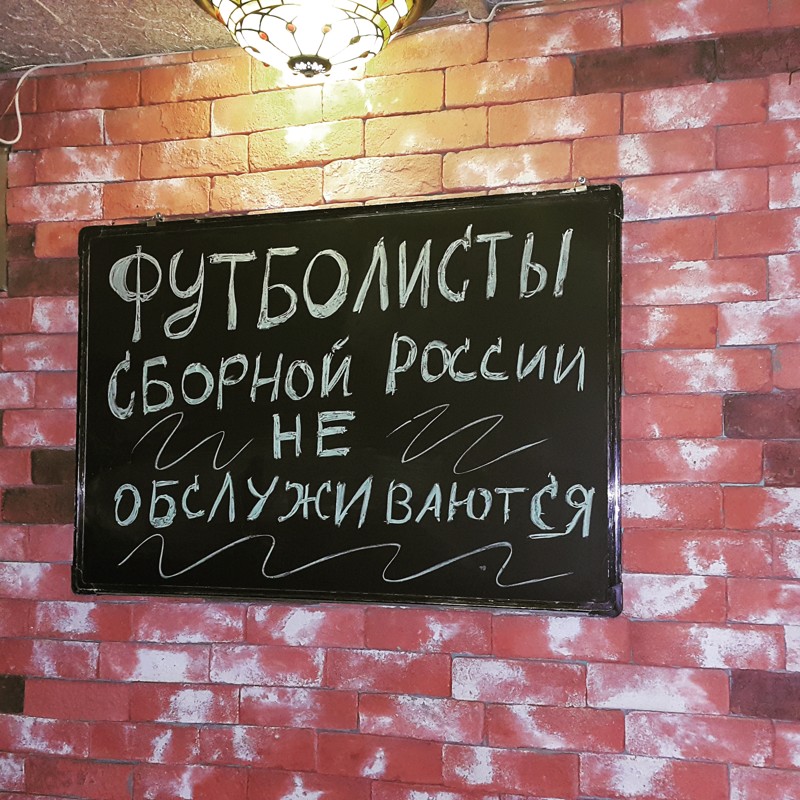 ФУТБОЛИСТЫ
СБОРНОЙ РОССИИ
НЕ
ОБСЛУЖИВАЮТСЯ